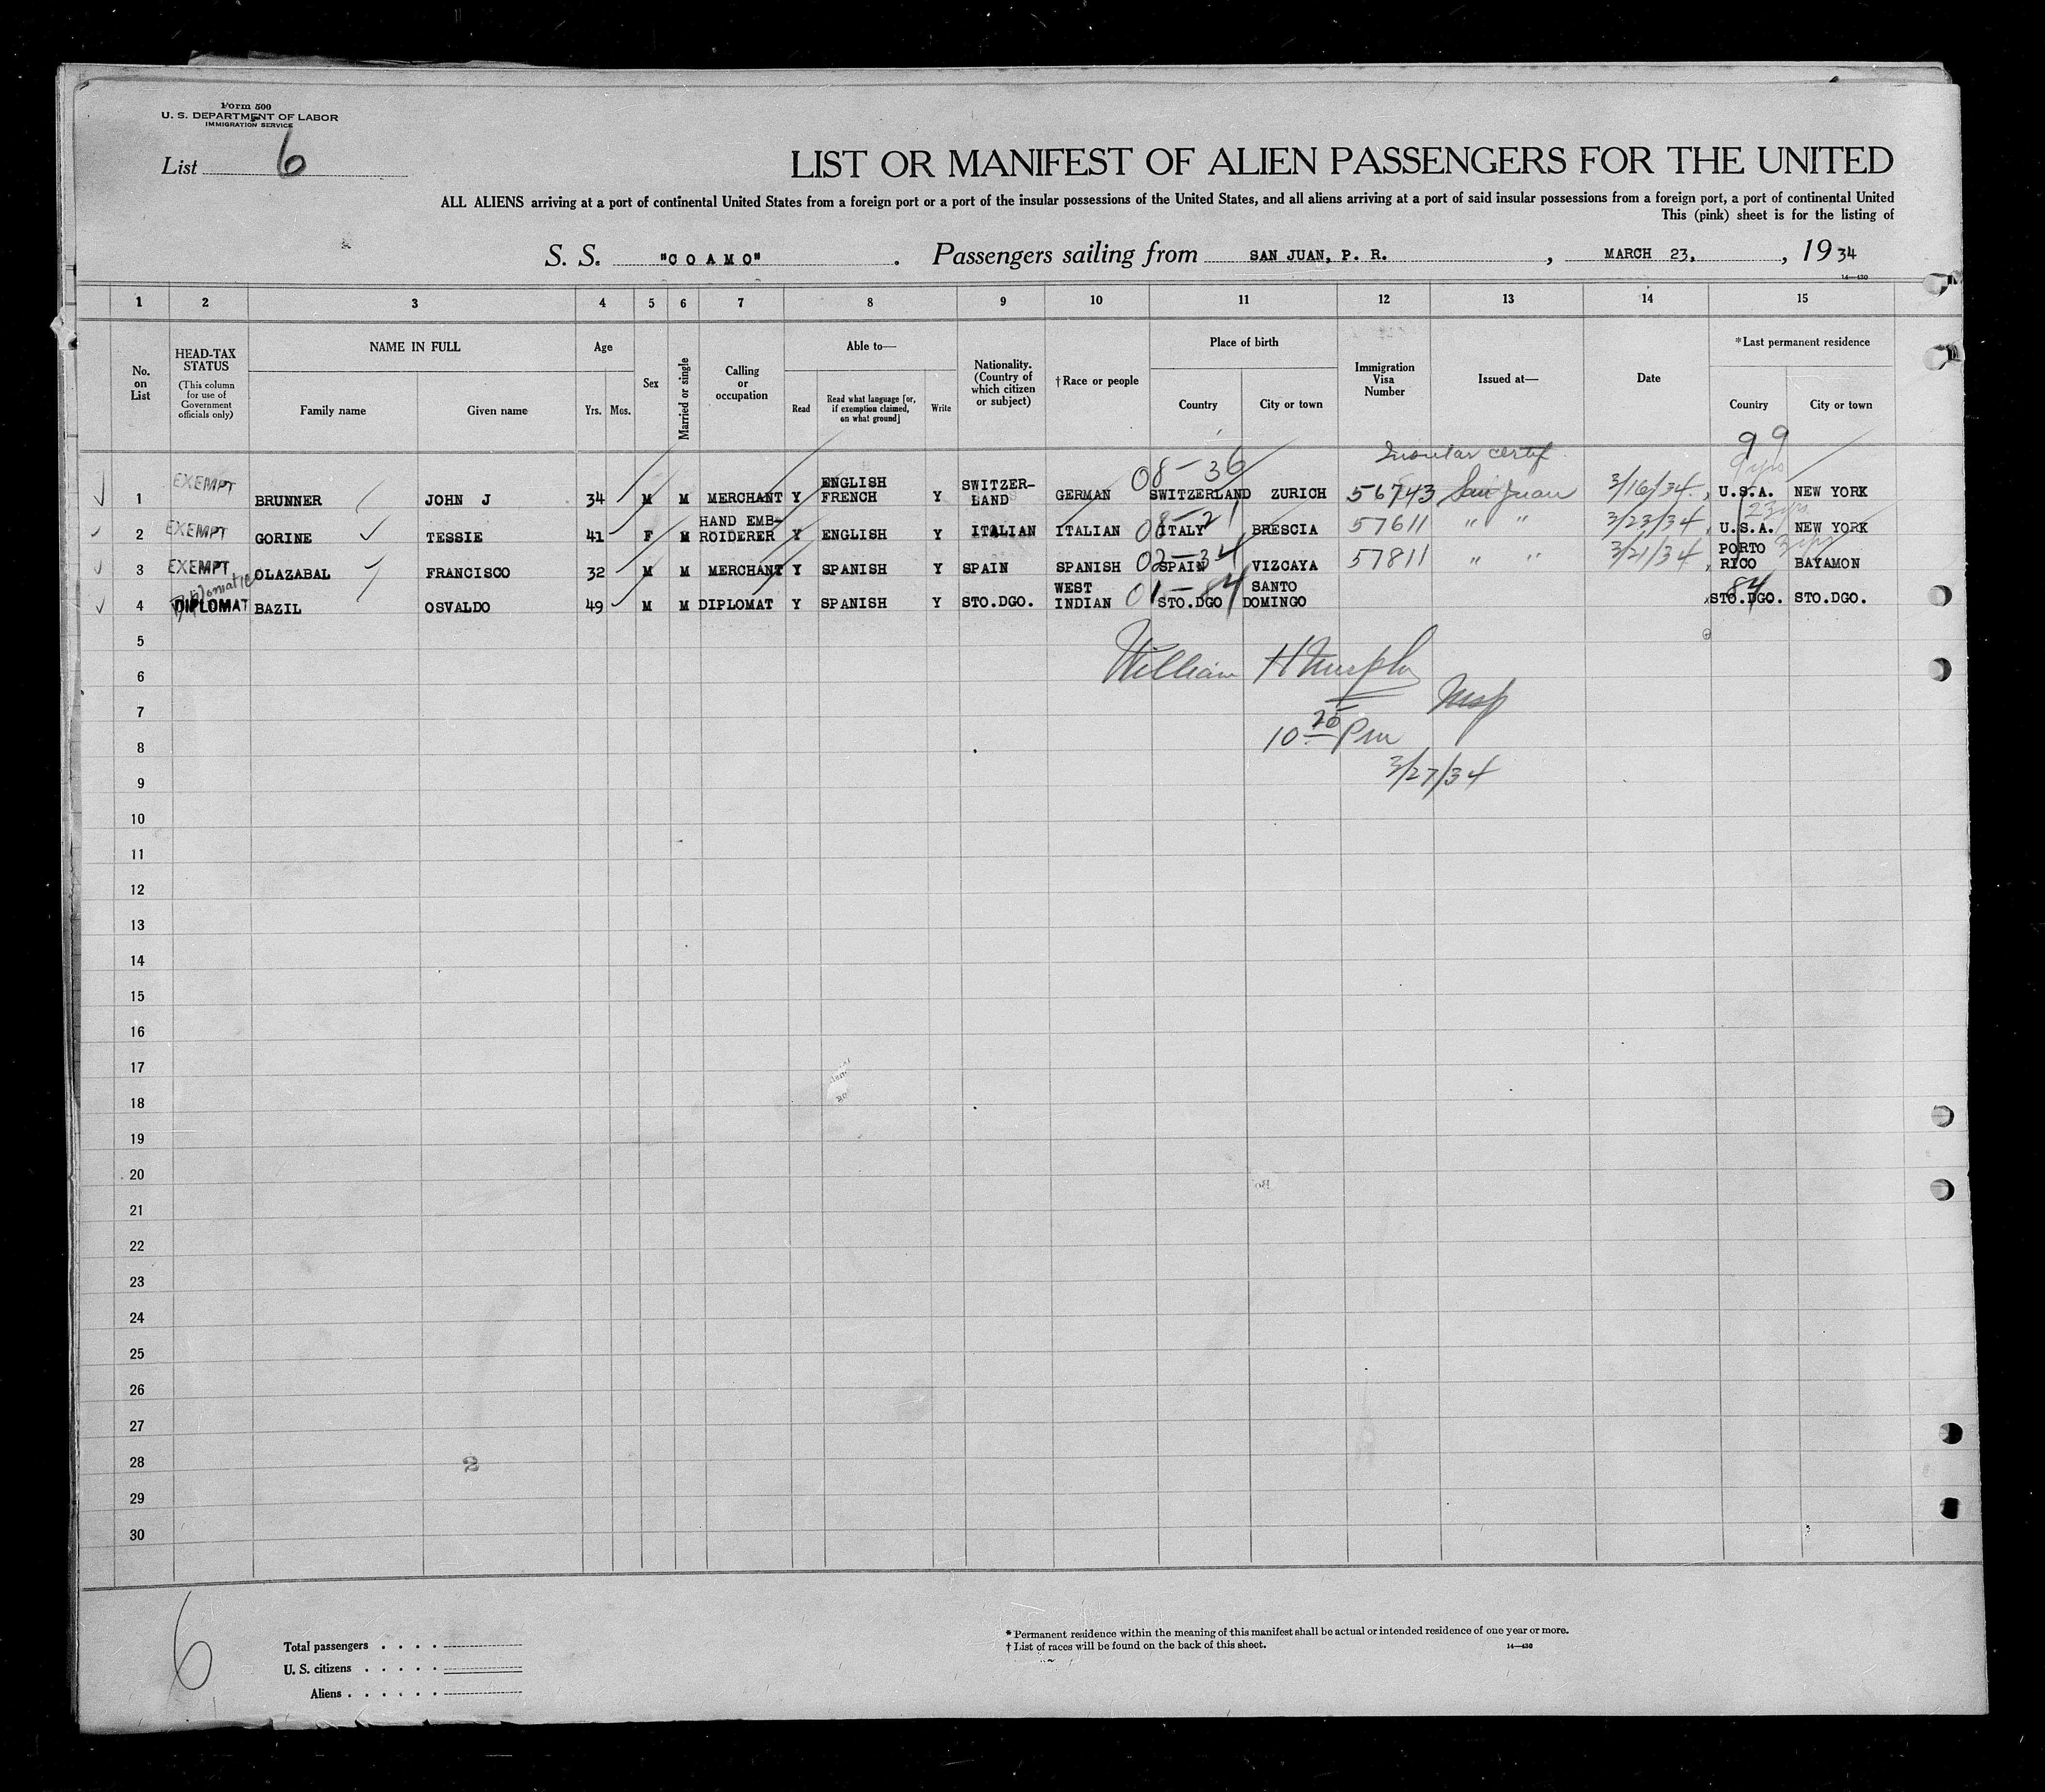 Form 500
U. S. DEPARTMENT OF LABOR
IMMIGRATION SERVICE
List 6
LIST OR MANIFEST OF ALIEN PASSENGERS FOR THE UNITED
ALL ALIENS arriving at a port of continental United States from a foreign port or a port of the insular possessions of the United States, and all aliens arriving at a port of said insular possessions from a foreign port, a port of continental United
This (pink) sheet is for the listing of
S. S. "COAMO". Passengers sailing from SAN JUAN, P. R., MARCH 23, , 1934
14—430
1 2 3 4 5 6 7 8 9 10 11 12 13 14 15
No. on List
HEAD-TAX STATUS
(This column for use of Government officials only)
NAME IN FULL
Family name
Given name
Age
Yrs. Mos.
Sex
Married or single
Calling or occupation
Able to—
Read
Read what language [or, if exemption claimed, on what ground]
Write
Nationality. (Country of which citizen or subject)
†Race or people
Place of birth
Country
City or town
Immigration Visa Number
Issued at—
Date
*Last permanent residence
Country
City or town
Insular certif.
99
1 EXEMPT BRUNNER JOHN J 34 M M MERCHANT Y ENGLISH FRENCH Y SWITZER-LAND GERMAN 08-36 SWITZERLAND ZURICH 56743 San Juan 3/16/34 U.S.A. 9 yrs NEW YORK
2 EXEMPT GORINE TESSIE 41 F M HAND EMB-ROIDERER Y ENGLISH Y ITALIAN ITALIAN 08-21 ITALY BRESCIA 57611 " " 3/23/34 U.S.A. 23 yrs NEW YORK
3 EXEMPT OLAZABAL FRANCISCO 32 M M MERCHANT Y SPANISH Y SPAIN SPANISH 02-34 SPAIN VIZCAYA 57811 " " 3/21/34 PORTO RICO 3 yrs BAYAMON
4 Diplomatic DIPLOMAT BAZIL OSVALDO 49 M M DIPLOMAT Y SPANISH Y STO.DGO. WEST INDIAN 01-84 STO.DGO SANTO DOMINGO 84 STO.DGO. STO.DGO.
5
6 William H Murphy
7 Insp
8 10 25 Pm
9 3/27/34
10
11
12
13
14
15
16
17
18
19
20
21
22
23
24
25
26
27
28
29
30
6
Total passengers . . . .
U. S. citizens . . . . .
Aliens . . . . . .
* Permanent residence within the meaning of this manifest shall be actual or intended residence of one year or more.
† List of races will be found on the back of this sheet.
14—430